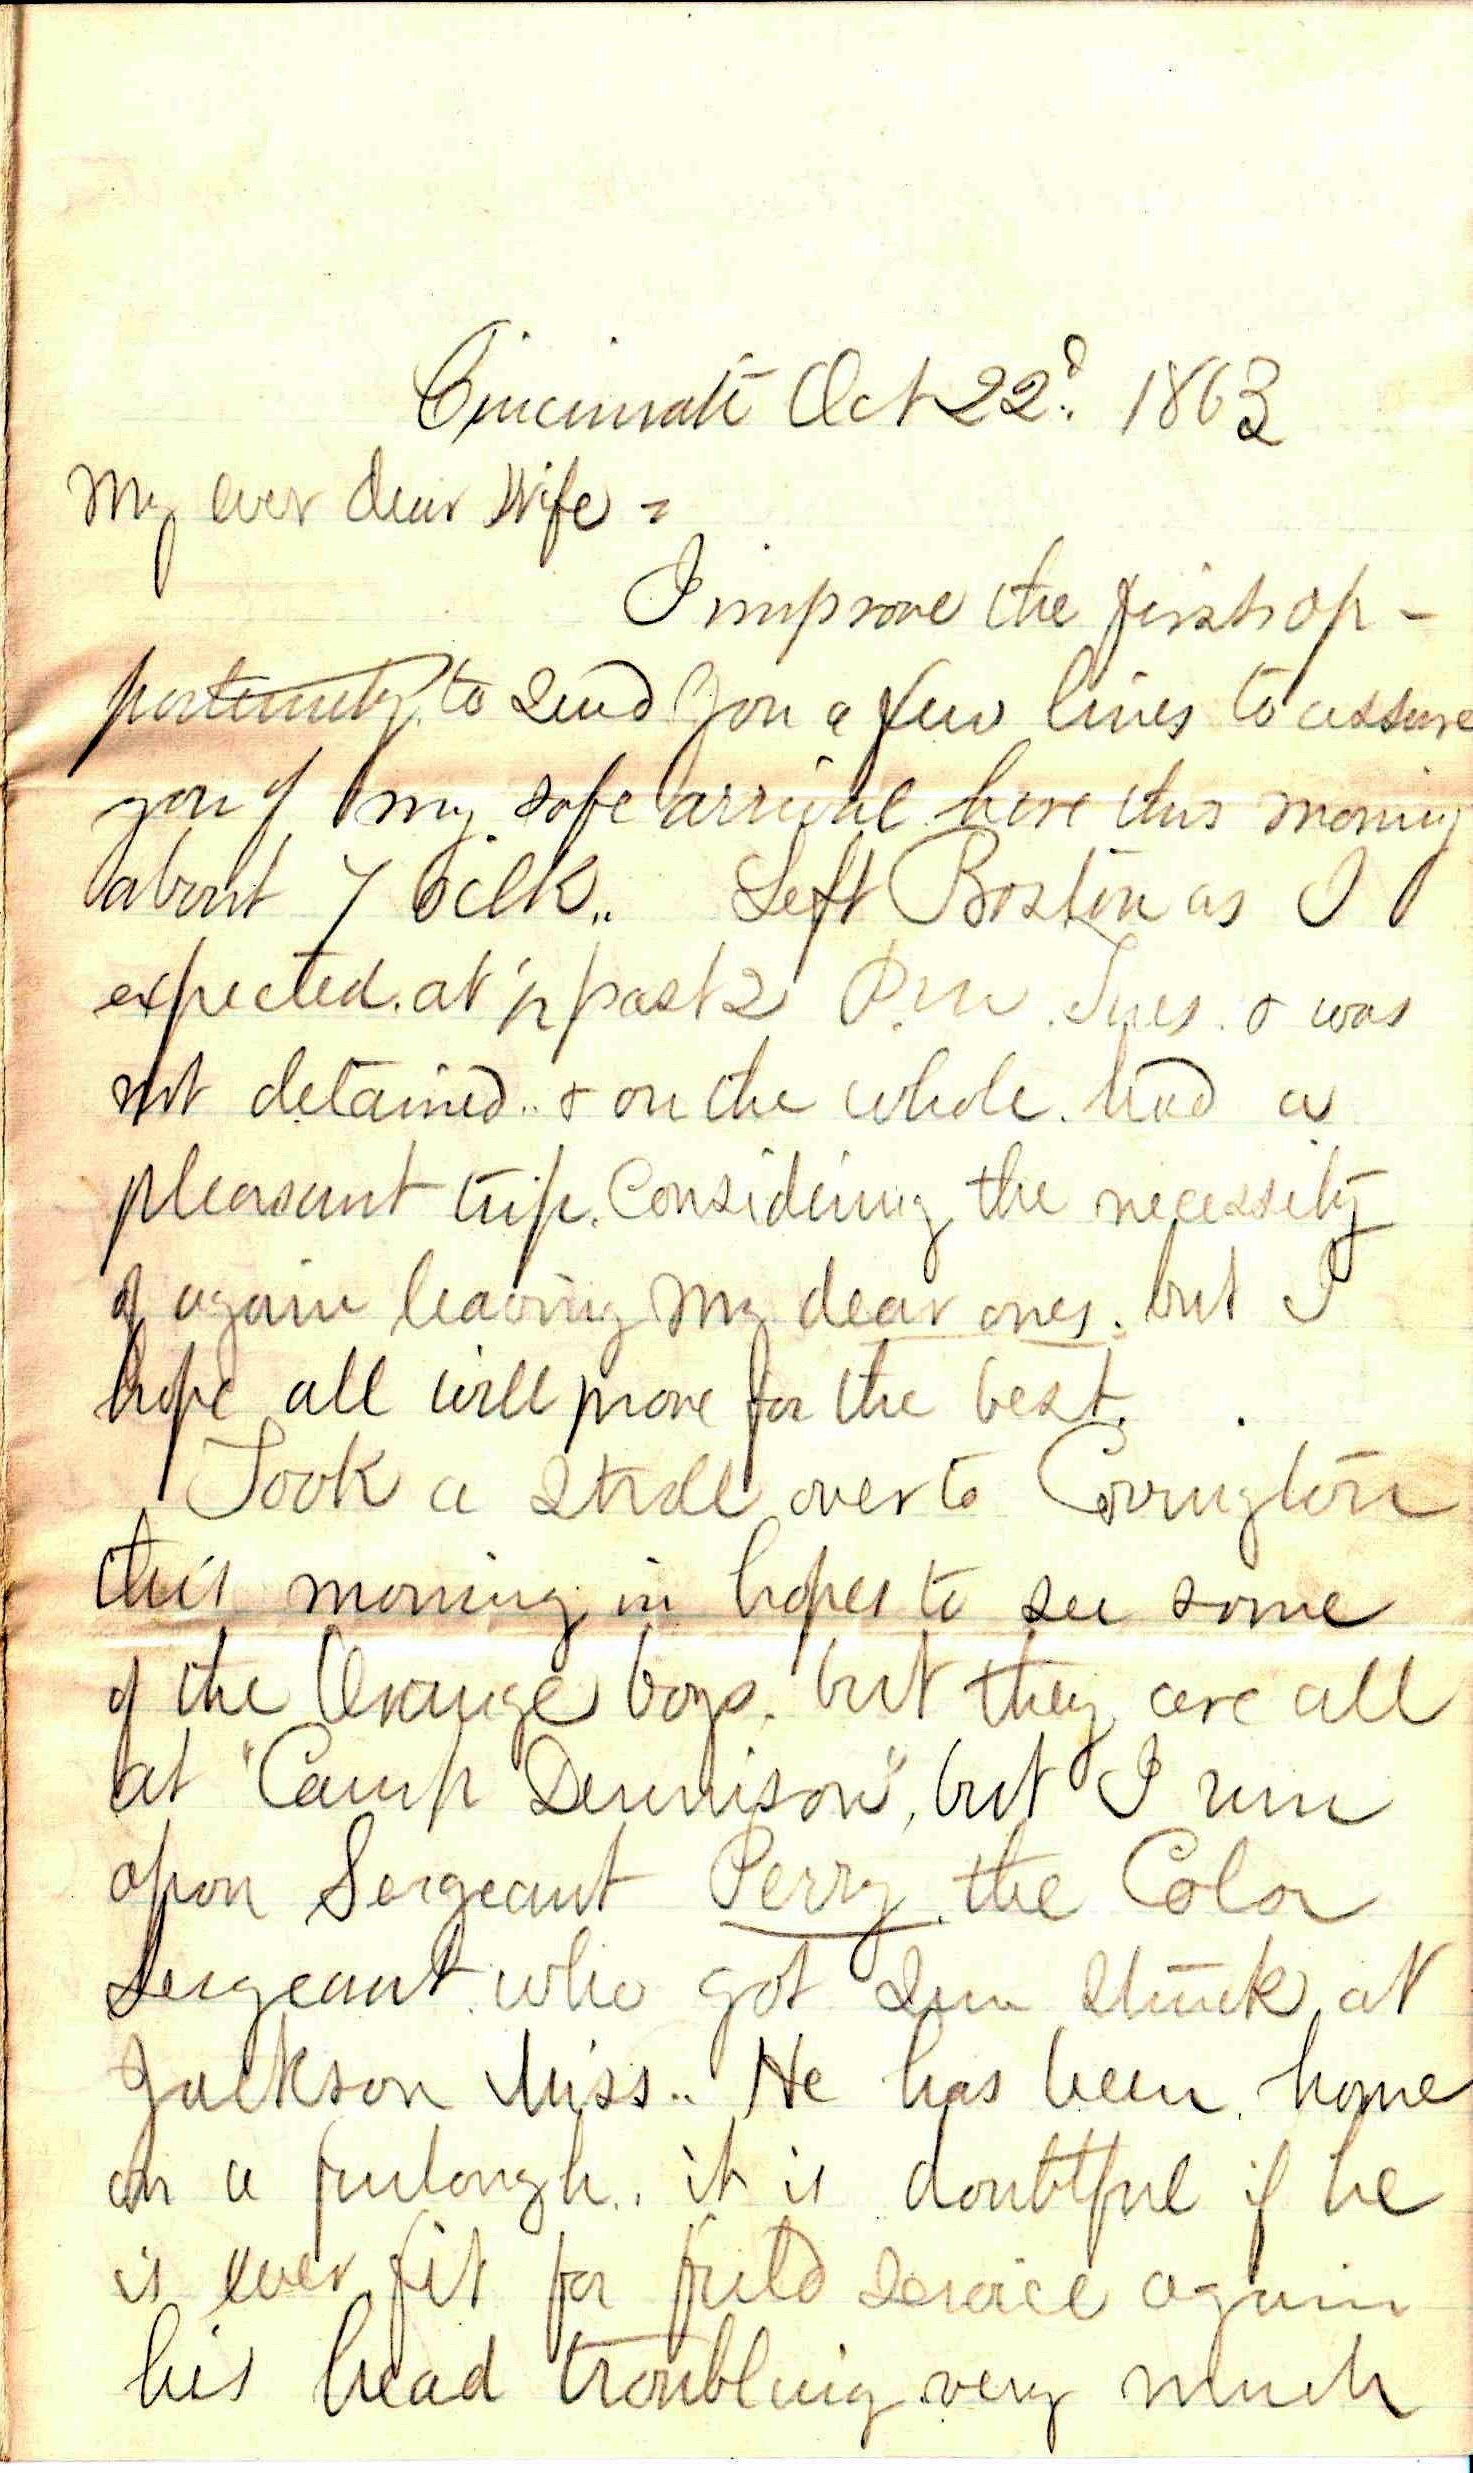 Cincinnati Oct 22d. 1863
My ever dear Wife =
I improve the first op-
portunity to send you a few lines to assure
you of my safe arrival here this morning
about 7 oclk.. Left Boston as I
expected. at ½ past 2 P.M. Tues. & was
not detained.. & on the whole. had a
pleasant trip. Considering the necessity
of again leaving my dear ones. but I
hope all will prove for the best.
Took a stroll over to Covington
this morning in hopes to see some
of the Orange boys. but they are all
at "Camp Dennison", but I run
upon Sergeant Perry. the Color
Sergeant. who got sun struck at
Jackson Miss.. He has been home
on a furlough.. it is doubtful if he
is ever fit for field service again
his head troubling very much